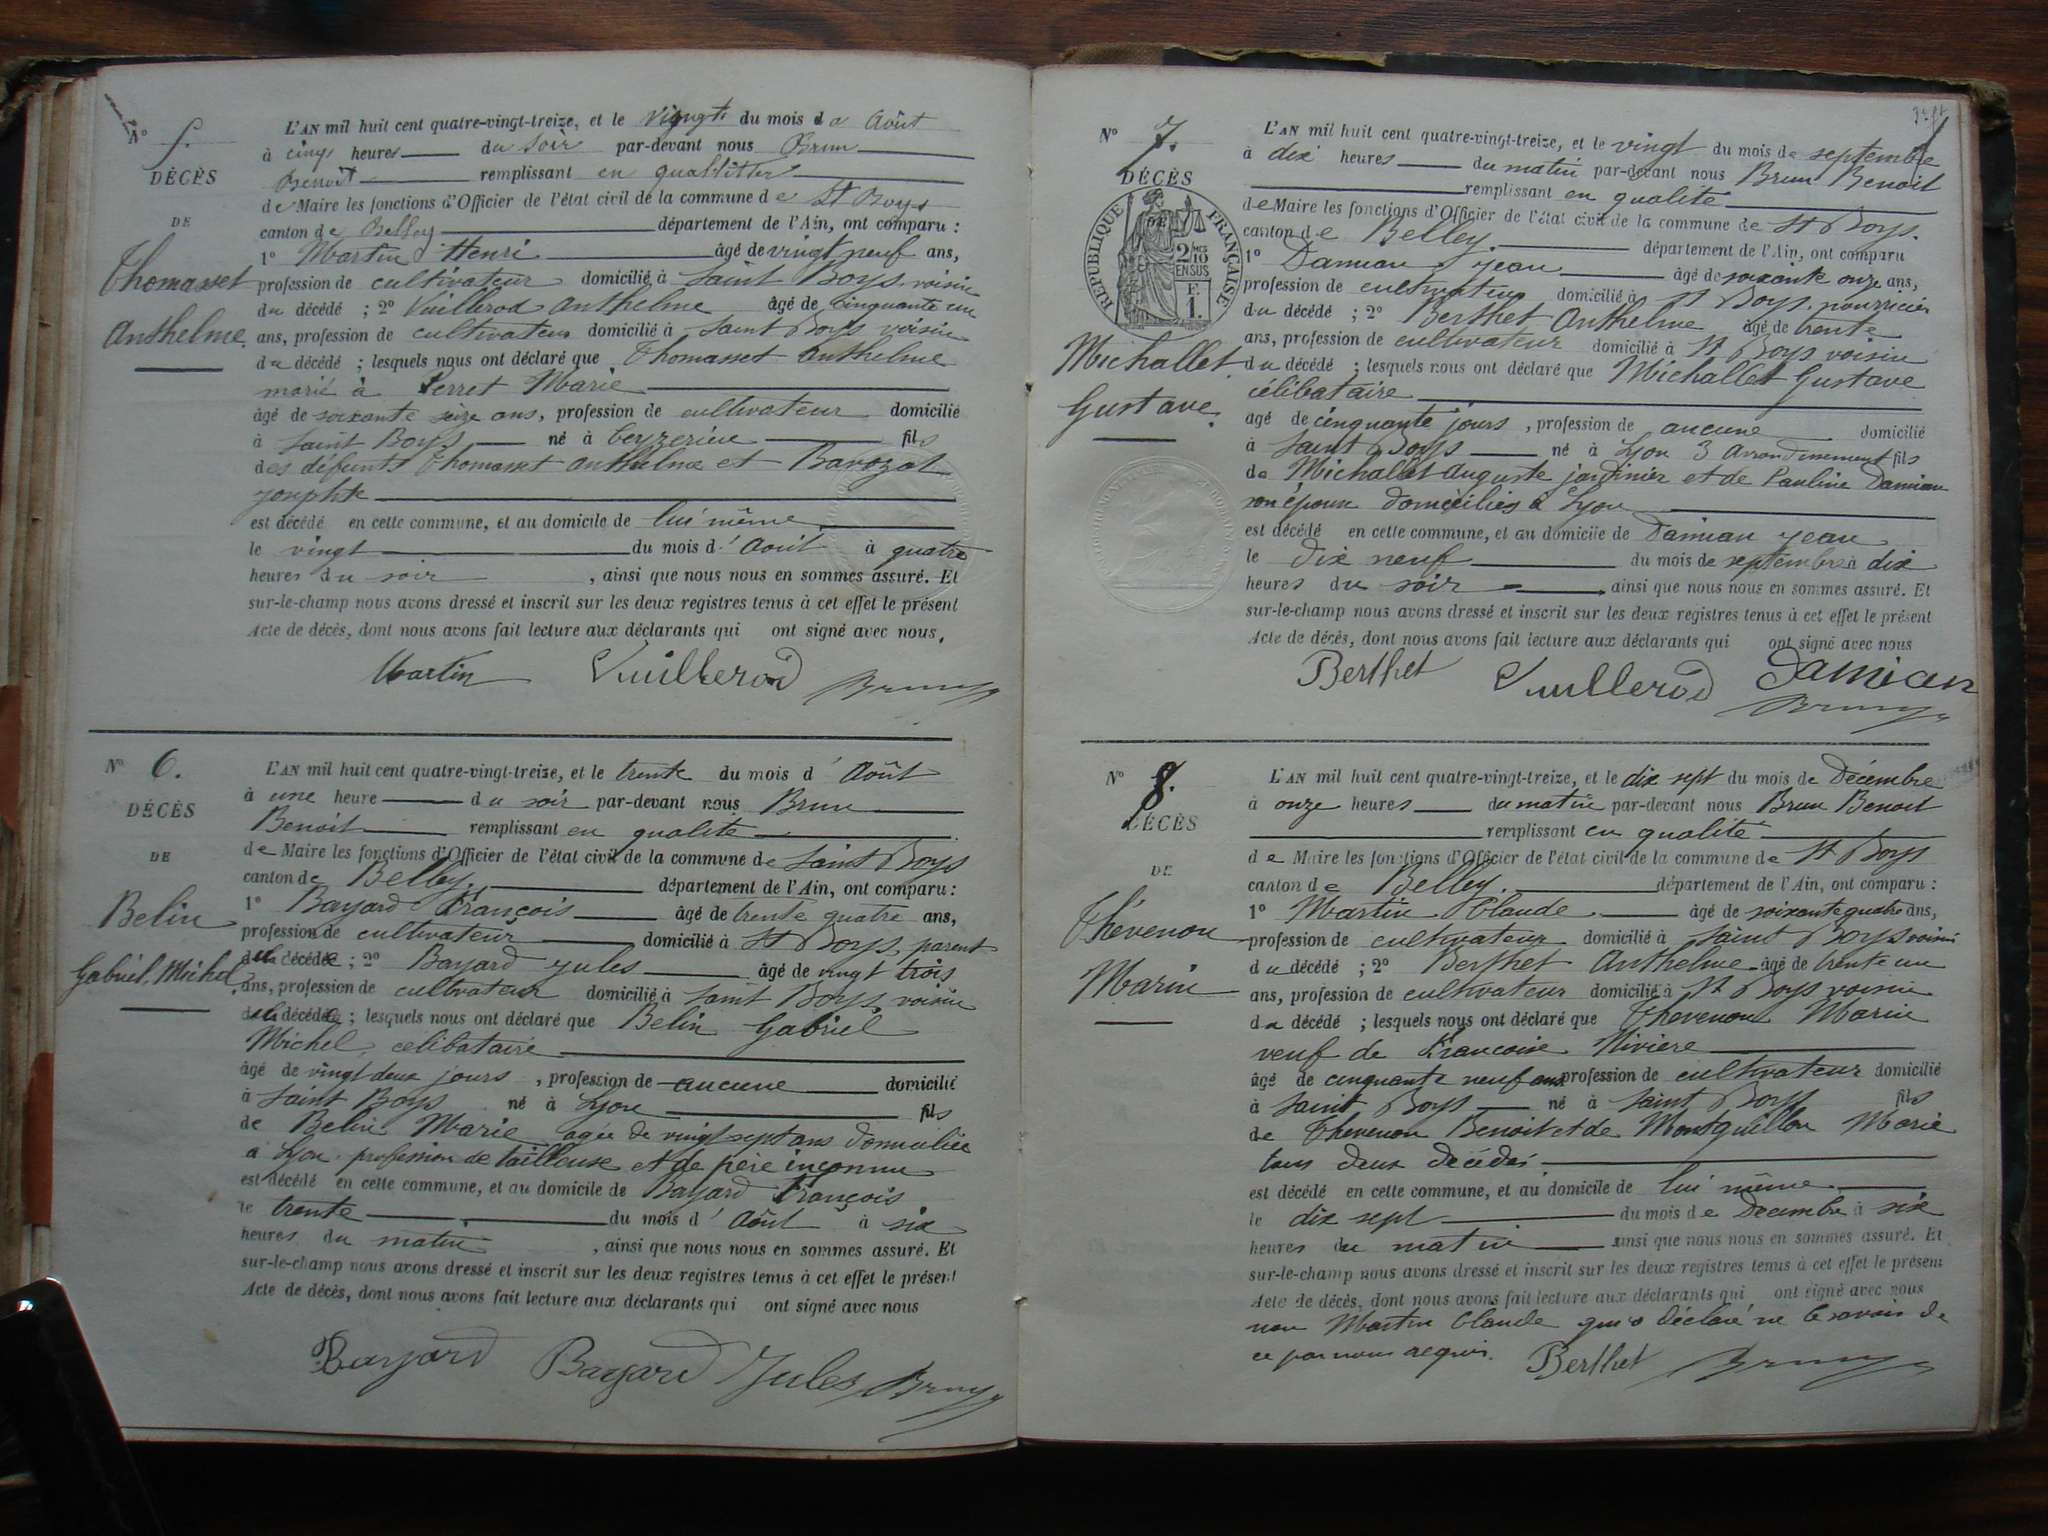 N° 5.
DÉCÈS
DE
Thomasset
Anthelme.
L'AN mil huit cent quatre-vingt-treize, et le vingt du mois d'Août
à cinq heures du soir par-devant nous Brun
Benoit remplissant en qualitité
de Maire les fonctions d'Officier de l'état civil de la commune de St Boys
canton de Belley département de l'Ain, ont comparu :
1° Martin Henri âgé de vingt neuf ans,
profession de cultivateur domicilié à Saint Boys, voisin
du décédé ; 2° Vuillerod Anthelme âgé de cinquante un
ans, profession de cultivateur domicilié à Saint Boys voisin
du décédé ; lesquels nous ont déclaré que Thomasset Anthelme
marié à Perret Marie
âgé de soixante seize ans, profession de cultivateur domicilié
à Saint Boys né à Ceyzerieu fils
des défunts Thomasset Anthelme et Barozat
Josephte
est décédé en cette commune, et au domicile de lui même
le vingt du mois d'Août à quatre
heures du soir , ainsi que nous nous en sommes assuré. Et
sur-le-champ nous avons dressé et inscrit sur les deux registres tenus à cet effet le présent
Acte de décès, dont nous avons fait lecture aux déclarants qui ont signé avec nous.
Martin Vuillerod Brun
N° 6.
DÉCÈS
DE
Belin
Gabriel, Michel
L'AN mil huit cent quatre-vingt-treize, et le trente du mois d'Août
à une heure du soir par-devant nous Brun
Benoit remplissant en qualité
de Maire les fonctions d'Officier de l'état civil de la commune de Saint Boys
canton de Belley. département de l'Ain, ont comparu :
1° Bayard François âgé de trente quatre ans,
profession de cultivateur domicilié à St Boys, parent
du décédé ; 2° Bayard Jules âgé de vingt trois
ans, profession de cultivateur domicilié à Saint Boys, voisin
du décédé ; lesquels nous ont déclaré que Belin Gabriel
Michel, célibataire
âgé de vingt deux jours , profession de aucune domicilié
à Saint Boys né à Lyon fils
de Belin Marie agée de vingt sept ans domiciliée
à Lyon profession de tailleuse et de père inconnu
est décédé en cette commune, et au domicile de Bayard François
le trente du mois d'Août à six
heures du matin , ainsi que nous nous en sommes assuré. Et
sur-le-champ nous avons dressé et inscrit sur les deux registres tenus à cet effet le présent
Acte de décès, dont nous avons fait lecture aux déclarants qui ont signé avec nous
Bayard Bayard Jules Brun
N° 7.
DÉCÈS
DE
RÉPUBLIQUE FRANÇAISE
2/10 EN SUS
F. 1.
Michallet
Gustave.
L'AN mil huit cent quatre-vingt-treize, et le vingt du mois de septembre
à dix heures du matin par-devant nous Brun Benoit
remplissant en qualité
de Maire les fonctions d'Officier de l'état civil de la commune de St Boys.
canton de Belley. département de l'Ain, ont comparu
1° Damian Jean âgé de soixante onze ans,
profession de cultivateur domicilié à St Boys, nourricier
du décédé ; 2° Berthet Anthelme âgé de trente
ans, profession de cultivateur domicilié à St Boys voisin
du décédé ; lesquels nous ont déclaré que Michallet Gustave
célibataire
agé de cinquante jours , profession de aucune domicilié
à Saint Boys né à Lyon 3 Arrondissement fils
de Michallet Auguste jardinier et de Pauline Damian
son épouse domiciliés à Lyon
est décédé en cette commune, et au domicile de Damian Jean
le dix neuf du mois de septembre à dix
heures du soir ainsi que nous nous en sommes assuré. Et
sur-le-champ nous avons dressé et inscrit sur les deux registres tenus à cet effet le présent
Acte de décès, dont nous avons fait lecture aux déclarants qui ont signé avec nous
Berthet Vuillerod Damian
Brun
N° 8.
DÉCÈS
DE
Thévenon
Marin
L'AN mil huit cent quatre-vingt-treize, et le dix sept du mois de Décembre
à onze heures du matin par-devant nous Brun Benoit
remplissant en qualité
de Maire les fonctions d'Officier de l'état civil de la commune de St Boys
canton de Belley. département de l'Ain, ont comparu :
1° Martin Claude âgé de soixante quatre ans,
profession de cultivateur domicilié à Saint Boys voisin
du décédé ; 2° Berthet Anthelme âgé de trente un
ans, profession de cultivateur domicilié à St Boys voisin
du décédé ; lesquels nous ont déclaré que Thevenon Marin
veuf de Francoise Riviere
âgé de cinquante neuf ans profession de cultivateur domicilié
à Saint Boys né à Saint Boys fils
de Thevenon Benoit et de Montquillon Marie
tous deux décédés
est décédé en cette commune, et au domicile de lui même
le dix sept du mois de Decembre à six
heures du matin ainsi que nous nous en sommes assuré. Et
sur-le-champ nous avons dressé et inscrit sur les deux registres tenus à cet effet le présent
Acte de décès, dont nous avons fait lecture aux déclarants qui ont signé avec nous
non Martin Claude qui a déclaré ne le savoir de
ce par nous requis. Berthet Brun